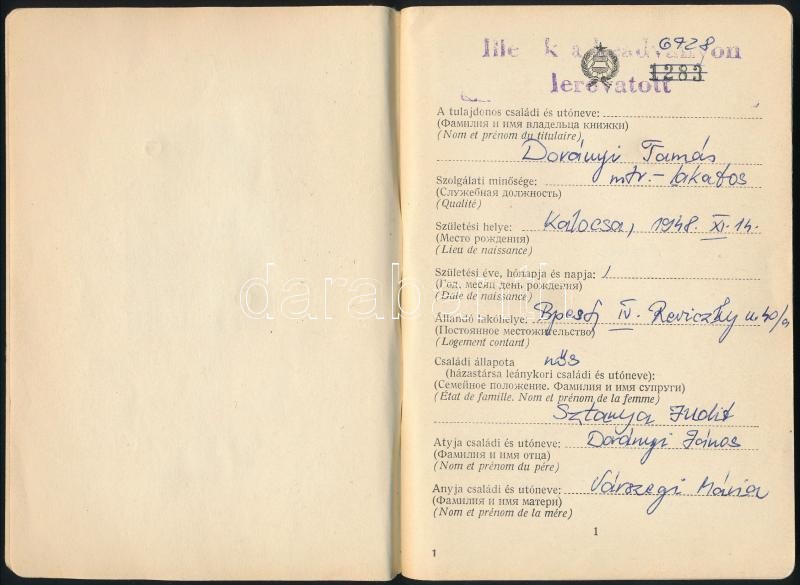 6728
1283
lerovatott
A tulajdonos családi és utóneve:
(Фамилия и имя владельца книжки)
(Nom et prénom du titulaire)
Dorányi Tamás
Szolgálati minősége: mtr.-lakatos
(Служебная должность)
(Qualité)
Születési helye: Kalocsa, 1948. XI. 14.
(Место рождения)
(Lieu de naissance)
Születési éve, hónapja és napja:
(Год, месяц день рождения)
(Date de naissance)
Állandó lakóhelye: Bpest, IV. Reviczky u. 40/a
(Постоянное местожительство)
(Logement contant)
Családi állapota nős
(házastársa leánykori családi és utóneve):
(Семейное положение. Фамилия и имя супруги)
(État de famille. Nom et prénom de la femme)
Sztanya Judit
Atyja családi és utóneve: Dorányi János
(Фамилия и имя отца)
(Nom et prénom du père)
Anyja családi és utóneve: Várszegi Mária
(Фамилия и имя матери)
(Nom et prénom de la mère)
1
1
darabanth